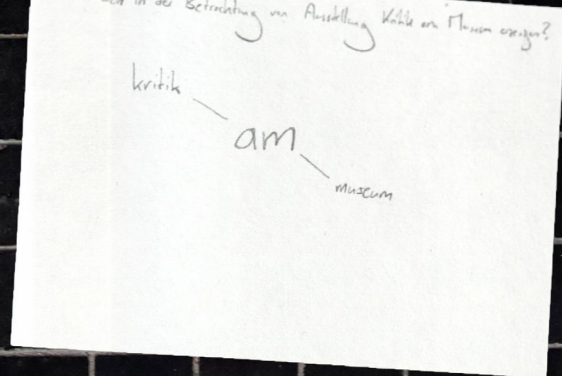 in der Betrachtung von Ausstellung Kritik am Museum erzeugen?
kritik
am
museum